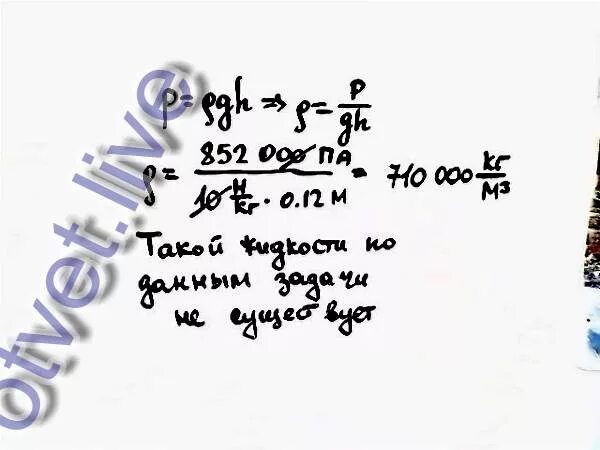 p = ρgh => ρ = P/gh
ρ = 852 000 ПА / 10 Н/кг · 0.12 м = 710 000 кг/м³
Такой жидкости по
данным задачи
не существует
otvet.live